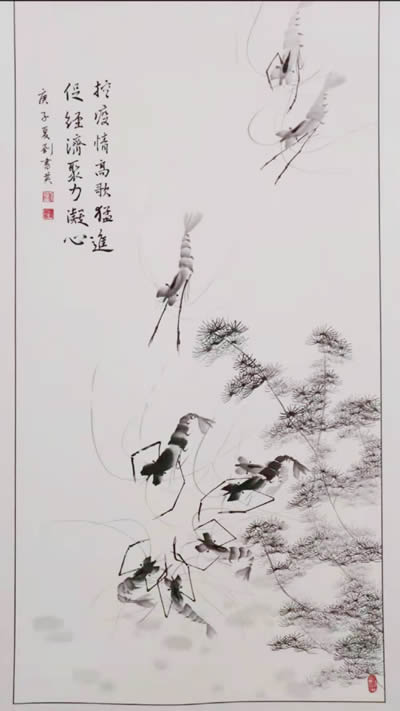 控疫情高歌猛進
促經濟聚力凝心
庚子夏劉書英